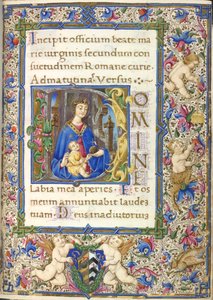 Incipit officium beate
marie uirginis secundum con
suetudinem Romane curie.
Ad matutinaʒ. Versus.
DOMINE
Labia mea aperies. Et os
meum annuntiabit laudeʒ
tuam. Deus in adiutoriuʒ